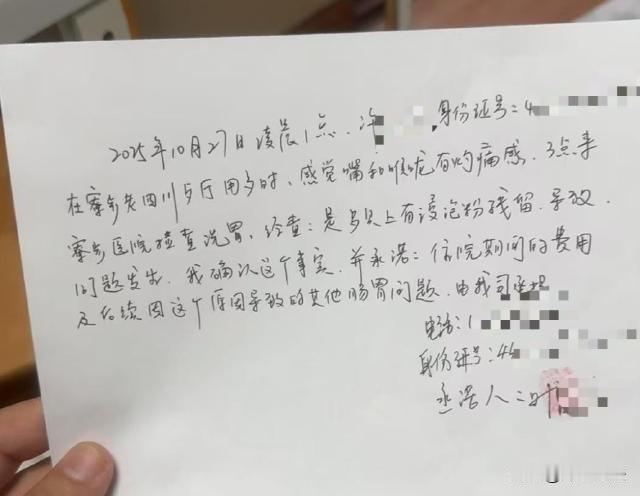 2025年10月27日凌晨1点. 许 . 身份证号:4
在寮步老四川歺厅用歺时、感觉嘴和喉咙有灼痛感. 3点来
寮步医院检查洗胃、经查:是歺具上有浸泡粉残留. 导致.
问题发生. 我确认这个事实. 并承诺:住院期间的费用
及后续因这个原因导致的其他肠胃问题. 由我司承担
电话:1
身份证号:44
承诺人:叶